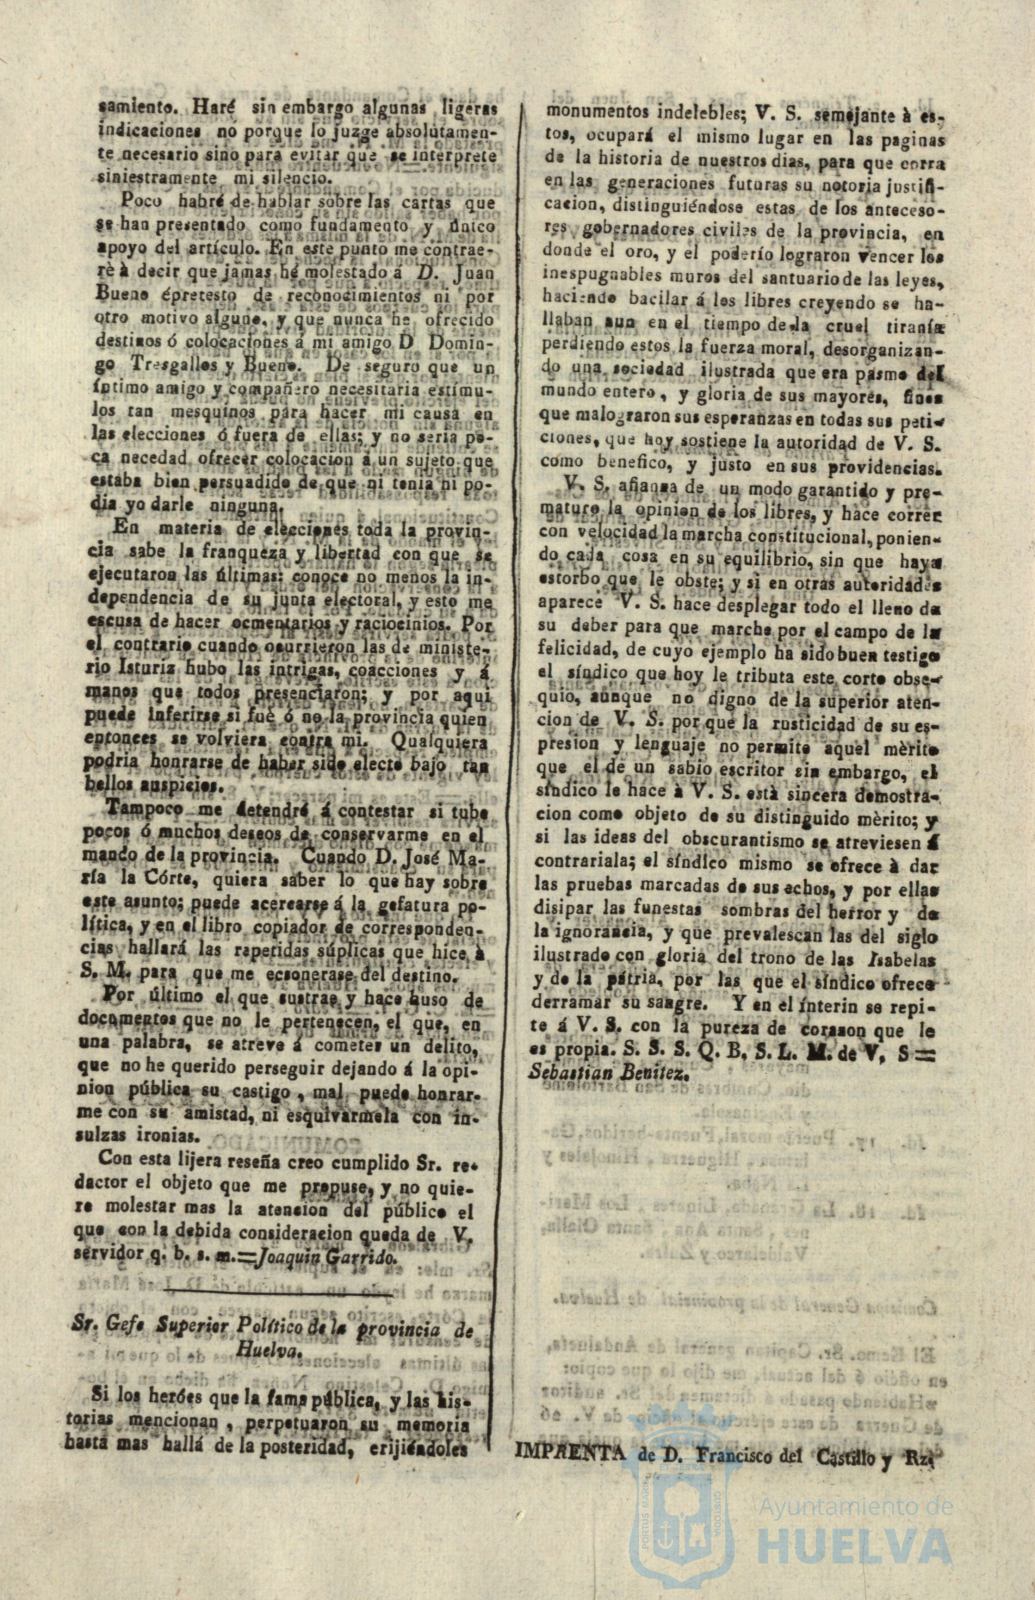 samiento. Haré sin embargo algunas ligeras
indicaciones no porque lo juzge absolutamen-
te necesario sino para evitar que se interprete
siniestramente mi silencio.
Poco habré de hablar sobre las cartas que
se han presentado como fundamento y único
apoyo del artículo. En este punto me contrae-
rè à decir que jamas he molestado á D. Juan
Bueno épretesto de reconocimientos ni por
otro motivo alguno, y que nunca he ofrecido
destinos ó colocaciones á mi amigo D Domin-
go Tresgallos y Bueno. De seguro que un
íntimo amigo y compañero necesitaria estímu-
los tan mesquinos para hacer mi causa en
las elecciones ó fuera de ellas; y no seria po-
ca necedad ofrecer colocacion á un sujeto que
estaba bien persuadido de que ni tenia ni po-
dia yo darle ninguna.
En materia de elecciones toda la provin-
cia sabe la franqueza y libertad con que se
ejecutaron las últimas: conoce no menos la in-
dependencia de su junta electoral, y esto me
escusa de hacer ocmentarios y raciocinios. Por
el contrario cuando ocurrieron las de ministe-
rio Isturiz hubo las intrigas, coacciones y á
manos que todos presenciaron; y por aqui
puede inferirse si fué ó no la provincia quien
entonces se volviera contra mi. Qualquiera
podria honrarse de haber sido electo bajo tan
bellos auspicios.
Tampoco me detendré á contestar si tube
pocos ó muchos deseos de conservarme en el
mando de la provincia. Cuando D. José Ma-
ría la Córte, quiera saber lo que hay sobre
este asunto; puede acercarse á la gefatura po-
lítica, y en el libro copiador de corresponden-
cias hallará las repetidas súplicas que hice à
S. M. para que me ecsonerase del destino.
Por último el que sustrae y hace huso de
documentos que no le pertenecen, el que, en
una palabra, se atreve á cometer un delito,
que no he querido perseguir dejando á la opi-
nion pública su castigo, mal puede honrar-
me con su amistad, ni esquivarmela con in-
sulzas ironias.
Con esta lijera reseña creo cumplido Sr. re-
dactor el objeto que me propuse, y no quie-
re molestar mas la atencion del público el
que con la debida consideracion queda de V.
servidor q. b. s. m.=Joaquin Garrido.
Sr. Gefe Superior Político de la provincia de
Huelva.
Si los heróes que la fama pública, y las his-
torias mencionan, perpetuaron su memoria
hasta mas hallá de la posteridad, erijiéndoles
monumentos indelebles; V. S. semejante à es-
tos, ocupará el mismo lugar en las paginas
de la historia de nuestros dias, para que corra
en las generaciones futuras su notoria justifi-
cacion, distinguiéndose estas de los anteceso-
res gobernadores civiles de la provincia, en
donde el oro, y el poderío lograron vencer los
inespugnables muros del santuario de las leyes,
haciendo bacilar á los libres creyendo se ha-
llaban aun en el tiempo de la cruel tiranía
perdiendo estos la fuerza moral, desorganizan-
do una sociedad ilustrada que era pasmo del
mundo entero, y gloria de sus mayorés, fines
que malograron sus esperanzas en todas sus peti-
ciones, que hoy sostiene la autoridad de V. S.
como benefico, y justo en sus providencias.
V. S. afianza de un modo garantido y pre-
maturo la opinion de los libres, y hace correr
con velocidad la marcha constitucional, ponien-
do cada cosa en su equilibrio, sin que haya
estorbo que le obste; y si en otras autoridades
aparece V. S. hace desplegar todo el lleno de
su deber para que marche por el campo de la
felicidad, de cuyo ejemplo ha sido buen testigo
el síndico que hoy le tributa este corto obse-
quio, aunque no digno de la superior aten-
cion de V. S. por que la rusticidad de su es-
presion y lenguaje no permite aquel mèrito
que el de un sabio escritor sin embargo, el
síndico le hace à V. S. està sincera demostra-
cion como objeto de su distinguido mèrito; y
si las ideas del obscurantismo se atreviesen á
contrariala; el síndico mismo se ofrece à dar
las pruebas marcadas de sus echos, y por ellas
disipar las funestas sombras del herror y de
la ignorancia, y que prevalescan las del siglo
ilustrado con gloria del trono de las Isabelas
y de la pátria, por las que el síndico ofrece
derramar su sangre. Y en el ínterin se repi-
te á V. S. con la pureza de corason que le
es propia. S. S. S. Q. B. S. L. M. de V. S=
Sebastian Benitez.
IMPRENTA de D. Francisco del Castillo y Rz.
PORTUS MARIS CUSTODIA
Ayuntamiento de
HUELVA